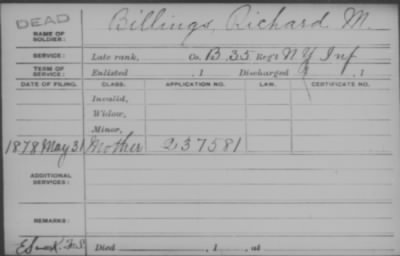 DEAD
NAME OF SOLDIER: Billings, Richard M.
SERVICE: Late rank, Co. B 35 Reg't N Y Inf
TERM OF SERVICE: Enlisted , 1 Discharged , 1
DATE OF FILING. CLASS. APPLICATION NO. LAW. CERTIFICATE NO.
Invalid,
Widow,
Minor,
1878 May 31 Mother 237581
ADDITIONAL SERVICES:
REMARKS:
Died , 1 , at